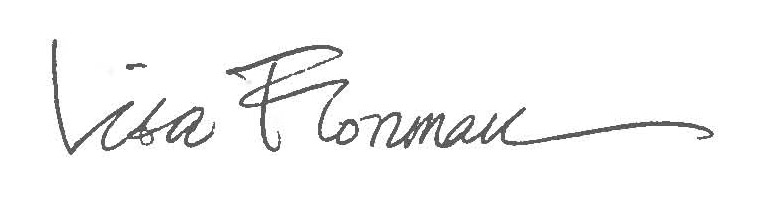 Lisa Florman